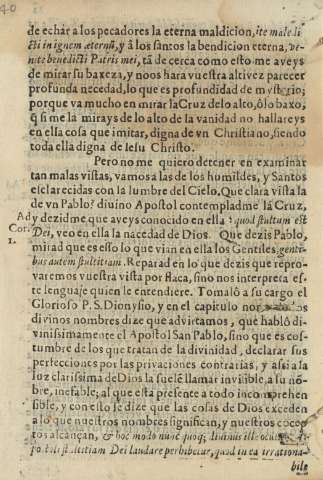 de echar a los pecadores la eterna maldicion, ite maledi
cti in ignem æternũ, y â los santos la bendicion eterna, ve-
nite benedicti Patris mei, tã de cerca como esto me aveys
de mirar su baxeza, y no os hara vuestra altivez parecer
profunda necedad, lo que es profundidad de mysterio;
porque va mucho en mirar la Cruz de lo alto, ô lo baxo,
q̃ si me la mirays de lo alto de la vanidad no hallareys
en ella cosa que imitar, digna de vn Christiano, siendo
toda ella digna de Iesu Christo.
Pero no me quiero detener en examinar
tan malas vistas, vamos a las de los humildes, y Santos
esclarecidas con la lumbre del Cielo. Que clara vista la
de vn Pablo? divino Apostol contemplad me la Cruz,
Ad y dezidme, que aveys conocido en ella: quod stultum est
Cor. Dei, veo en ella la necedad de Dios. Que dezis Pablo,
1. mirad que es esso lo que vian en ella los Gentiles, genti-
bus autem stultitiam. Reparad en lo que dezis que repro-
varemos vuestra vista por flaca, sino nos interpreta es-
te lenguaje quien le entendiere. Tomalô a su cargo el
Glorioso P. S. Dionysio, y en el capitulo
divinos nombres dize que advirtamos, que hablô di-
vinissimamente el Apostol San Pablo, sino que es cos-
tumbre de los que tratan de la divinidad, declarar sus
perfecciones por las privaciones contrarias, y assi a la
luz clarissima de Dios la suelẽ llamar invisible, a su nõ-
bre, inefable; al que està presente a todo incomprehen
sible, y con esto se dize que las cosas de Dios exceden
a lo que nuestros nombres significan, y nuestros concep
tos alcançan, & hoc modo nunc quoq; divinus ille
stultitiam Dei laudare perhibetur, quod in ea irrationa-
bile